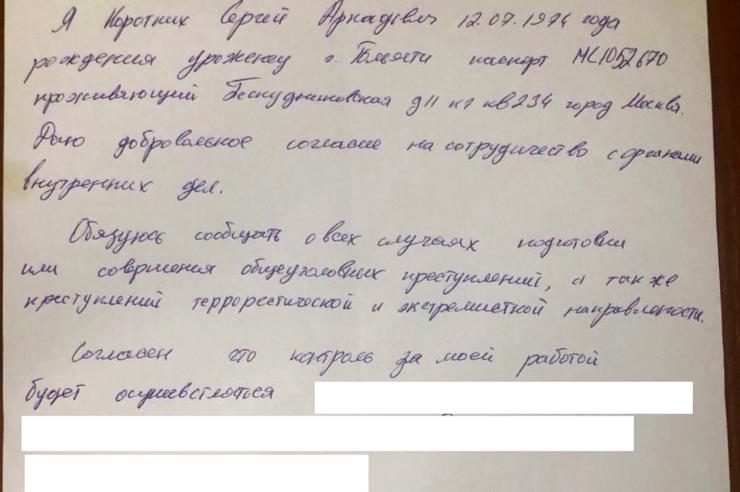 Я Коротких Сергей Аркадьевич 12.07.1974 года
рождения уроженец г. Тольятти паспорт MC1052670
проживающий Бескудниковская д11 к1 кв234 город Москва.
Даю добровольное согласие на сотрудичество с органами
внутренних дел.
Обязуюсь сообщать о всех случаях подготовки
или совершения общеуголовных преступлений, а также
преступлений террорестической и экстремисткой направлености.
Согласен что контроль за моей работой
будет осуществляться